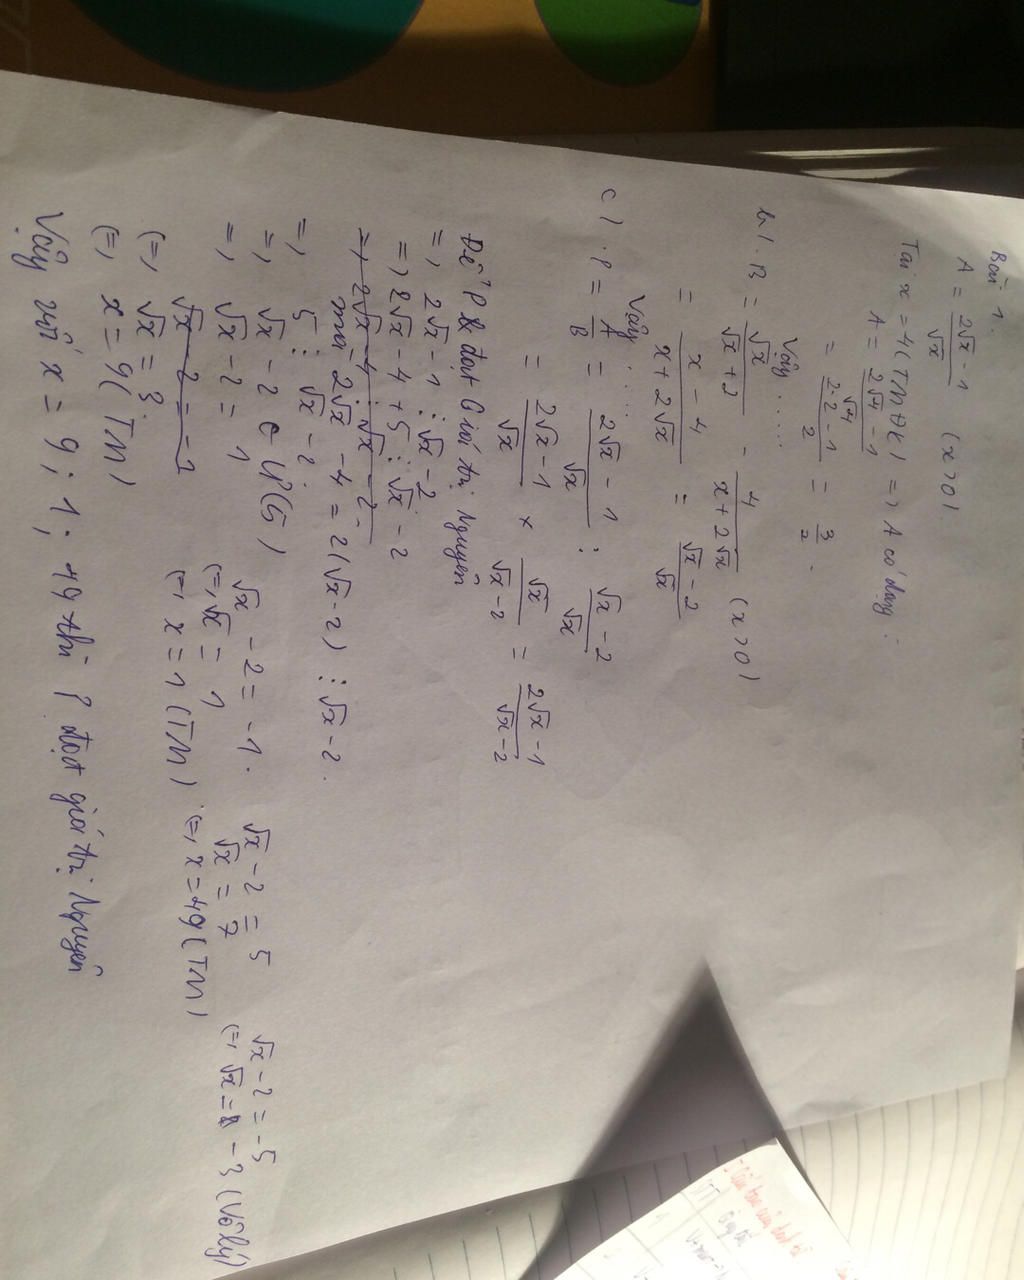 Bài 1.
A = (2√x - 1)/√x (x > 0).
Tại x = 4 (TMĐK) => A có dạng:
A = (2√4 - 1)/√4
= (2.2 - 1)/2 = 3/2.
Vậy .....
b). B = √x/(√x + 2) - 4/(x + 2√x) (x > 0)
= (x - 4)/(x + 2√x) = (√x - 2)/√x
Vậy .....
c) . P = A/B = (2√x - 1)/√x : (√x - 2)/√x
= (2√x - 1)/√x × √x/(√x - 2) = (2√x - 1)/(√x - 2)
Để P đạt Giá trị Nguyên
=> 2√x - 1 ⋮ √x - 2
=> 2√x - 4 + 5 ⋮ √x - 2
=> 2√x - 4 ⋮ √x - 2
mà 2√x - 4 = 2(√x - 2) ⋮ √x - 2.
=> 5 ⋮ √x - 2
=> √x - 2 ∈ Ư(5)
=> √x - 2 = 1
√x - 2 = 1
(=) √x = 3
(=) x = 9 (TM)
√x - 2 = -1.
(=) √x = 1
(=) x = 1 (TM)
√x - 2 = 5
√x = 7
(=) x = 49 (TM)
√x - 2 = -5
(=) √x = -3 (Vô lý)
Vậy với x = 9; 1; 49 thì P đạt giá trị Nguyên